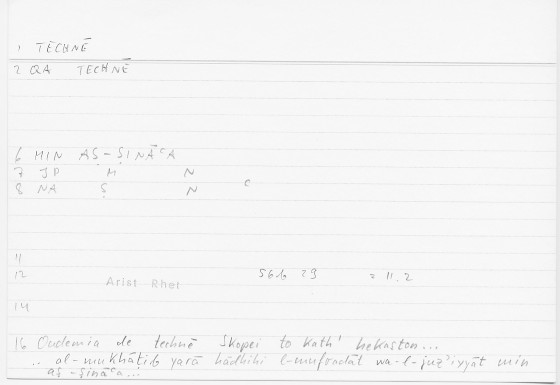 1 TECHNĒ
2 QA TECHNĒ
6 MIN AṢ-ṢINĀᶜA
7 JP M N
8 NA Ṣ N c
11
12 Arist Rhet 56b 29 = 11.2
14
16 Oudemia de technē skopei to kath' hekaston...
.. al-mukhāṭib yarā hādhihi l-mufradāt wa-l-juz'iyyāt min
aṣ-ṣināᶜa...